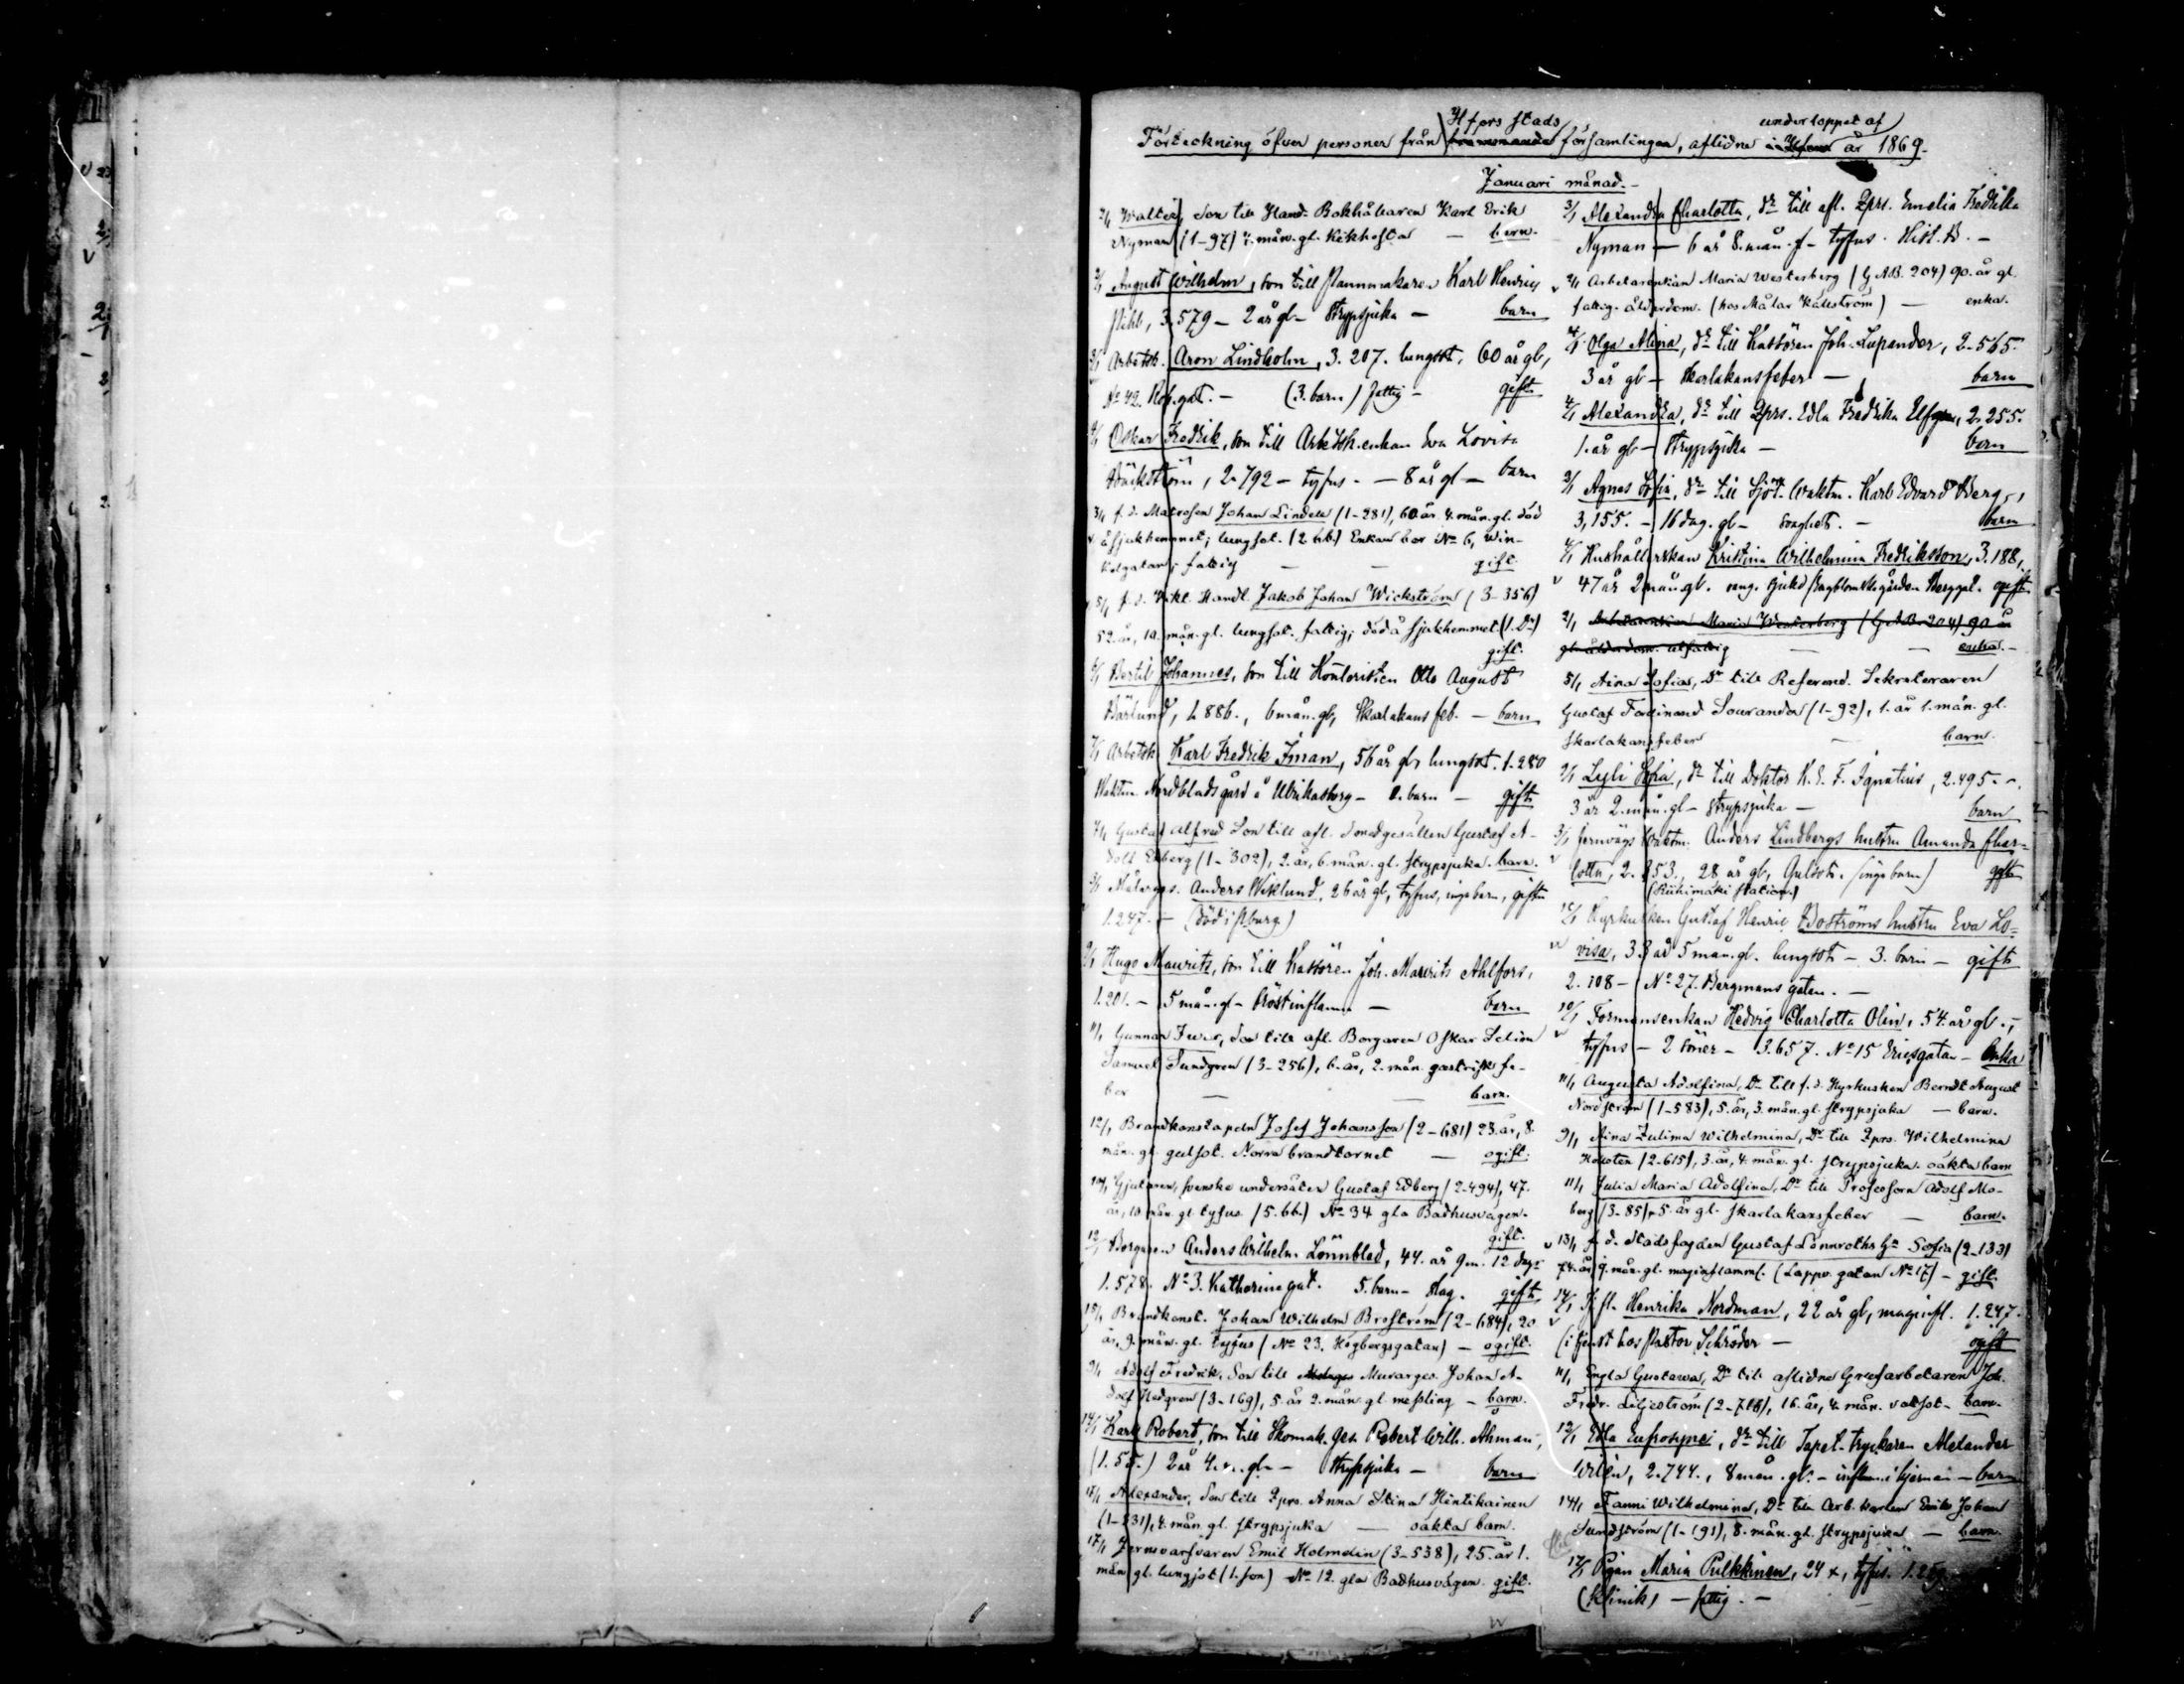 Hfors stads
underloppet af
Förteckning öfver personer från församlingen, aflidne år 1869.
Januari månad.-
2/1 Walter, Son till Hand. Bokhållaren Karl Erik
Nyman (1-97) 7. mån. gl. Kikhosta - barn.
2/1 August Wilhelm, son till Pannmakaren Karl Henrik
Pihl, 3.579 - 2 år gl - Strypsjuka - barn
3/1 Arbetsk. Aron Lindholm, 3.207. lungsot, 60 år gl,
No 42. Rob.gat. - (3. barn) fattig - gift
4/1 Oskar Fredrik, son till Arbetsk.enkan Eva Lovisa
Bäckström, 2.792 - tyfus - - 8 år gl - barn
3/1 f. d. Matrosen Johan Lindell (1-281), 60 år. 4. mån. gl. död
å sjukhemmet; lungsot. (2 bb.) Enkan bor No 6, Win-
kelgatan; fattig - - gift
5/1 f. d. Handl. Jakob Johan Wickström (3-356)
52. år, 10. mån. gl. lungsot. fattig; död å sjukhemmet. (1. Dr)
gift.
6/1 Bertil Johannes, son till Kontoristen Otto August
Bärlund, 1.886., 6 mån. gl, Skarlakans feb. - barn
7/1 Arbetsk. Karl Fredrik Iman, 56 år gl, lungsot. 1.280
Waktm. Nordblads gård å Ulrikasborg - 0. barn - gift
7/1 Gustaf Alfred Son till afl. Smedgesällen Gustaf A-
dolf Ekberg (1-302), 2. år, 6. mån. gl. strypsjuka. barn.
3/1 Målareges. Anders Wiklund, 26 år gl, tyfus, inga barn, gift
1.247. - (död i Pburg)
9/1 Hugo Maurits, son till Kustören Joh. Maurits Ahlfors,
1.201. - 5 mån. gl - Bröstinflamm - barn
11/1 Gunnar Iwar, Son till afl. Borgaren Oskar Selim
Samuel Sundgren (3-256), 6. år, 2. mån. gastrisk fe-
ber - - barn.
12/1 Brandkonstapeln Josef Johansson (2-681) 23. år, 8.
mån. gl. gulsot. Norra brandtornet - ogift.
10/1 Gjutaren, svenske undersåten Gustaf Edberg (2-494), 47.
år, 10 mån. gl. tyfus (5. bb.) No 34 gla Badhusvägen.
gift.
12/1 Borgaren Anders Wilhelm Lönnblad, 44. år 9 m. 12 dag.
1.578. No 3. Katharinegat. 5. barn - slag. gift
15/1 Brandkonst. Johan Wilhelm Broström (2-684), 20
år, 9. mån. gl. tyfus (No 23. Högbergsgatan) - ogift.
9/1 Adolf Fredrik, Son till Murarges. Johan A-
dolf Hedgren (3-169), 5. år 2. mån. gl. messling - barn.
14/1 Karl Robert, son till Skomak. ges. Robert Wilh. Åhman,
2 år 4. gl. - Strypsjuka - barn
15/1 Alexander, Son till Qprs. Anna Stina Hintikainen
4. mån. gl. strypsjuka - oäkta barn.
17/1 Jernsvarfvaren Emil Holmelin (3-538), 25. år 1.
mån gl. lungsot (1. son) No 12. gla Badhusvägen. gift.
3/1 Alexandra Charlotta, Dr till afl. Qprs. Emelia Fredrika
Nyman - 6 år 8. mån. gl - tyfus. Hist. B. -
2/1 Arbetarenkan Maria Westerberg (G AB. 204) 90. år gl.
fattig. ålderdom. (hos Målar Källström) - enka.
4/1 Olga Alina, Dr till Kustören Joh. Lupander, 2-565.
3 år gl - Skarlakansfeber - barn
4/1 Alexandra, Dr till Qprs. Edla Fredrika Elfgren, 2.255.
1. år gl - Strypsjuka - barn
2/1 Agnes Sofia, Dr till Sjöt. Waktm. Karl Edvard Berg,
3,155. - 16 dag. gl - svaghet. - barn
6/1 Hushållerskan Kristina Wilhelmina Fredriksson, 3.188,
47 år 2 mån. gl. gård. Bergsgat. ogift.
2/1 Arbetarenkan Maria Westerberg (G AB. 204) 90 år
gl. ålderdom. utfattig - - enka.-
5/1 Aina Sofia, Dr till Referend. Sekreteraren
Gustaf Ferdinand Sourander (1-92), 1. år 1. mån. gl.
skarlakansfeber - barn.
9/1 Lyli Sofia, Dr till Doktor K. E. F. Ignatius, 2.495.-
3 år 2. mån. gl - Strypsjuka - barn
3/1 Jernvägs Waktm. Anders Lindbergs hustru Amanda Char-
lotta, 2.353., 28 år gl, Gulsot. (inga barn) gift
(Riihimäki station)
12/1 Hyrkusken Gustaf Henric Boströms hustru Eva Lo-
visa, 33 år 5 mån. gl. lungsot - 3. barn - gift
2.108 - No 27. Bergmans gatan. -
10/1 Formansenkan Hedvig Charlotta Olin, 54. år gl.,
tyfus - 2 söner - 3.657. No 15 Ericsgatan - Enka
11/1 Augusta Adolfina, Dr till f. d. Hyrkusken Berndt August
Nordström (1-583), 5. år, 3. mån. gl. strypsjuka - barn.
9/1 Aina Zulima Wilhelmina, Dr till Qprs. Wilhelmina
(2-615), 3. år, 4. mån. gl. strypsjuka. oäkta barn
11/1 Julia Maria Adolfina, Dr till Professorn Adolf Mo-
berg (3-85), 5. år gl. skarlakansfeber - barn.
13/1 f. d. Stadsfogden Gustaf Lönnroths Ha Sofia (2-133)
74. år 9. mån. gl. maginflamm. (Lappv. gatan No 17) - gift.
14/1 Tjfl. Henrika Nordman, 22 år gl, maginfl. 1.247.
(i tjenst hos Pastor Schröder - ogift
11/1 Engla Gustawa, Dr till aflidne Grufarbetaren Joh.
Fredr. Liljeström 16. år, 4. mån. vattsot - barn.
12/1 Edla Eufrosyne, Dr till Tapet. tryckaren Alexander
Wilén, 2.744., 8 mån. gl. - inflam. i hjernan - barn
14/1 Fanni Wilhelmina, Dr till Arb. karlen Emil Johan
Sundström (1-191), 8. mån. gl. strypsjuka - barn.
17/1 Pigan Maria Pulkkinen, 24 år, tyfus.
(Klinik) - fattig. -